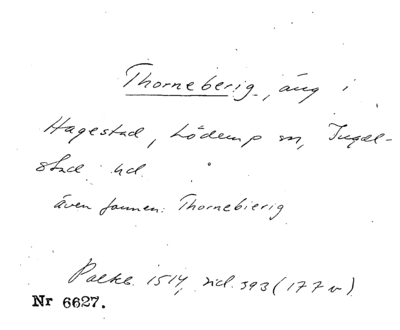 Thorneberig, äng i
Hagestad, Löderup sn, Ingel-
stad hd.
även formen: Thornebierig
Palteb. 1514, sid. 393 (177 v)
Nr 6627.